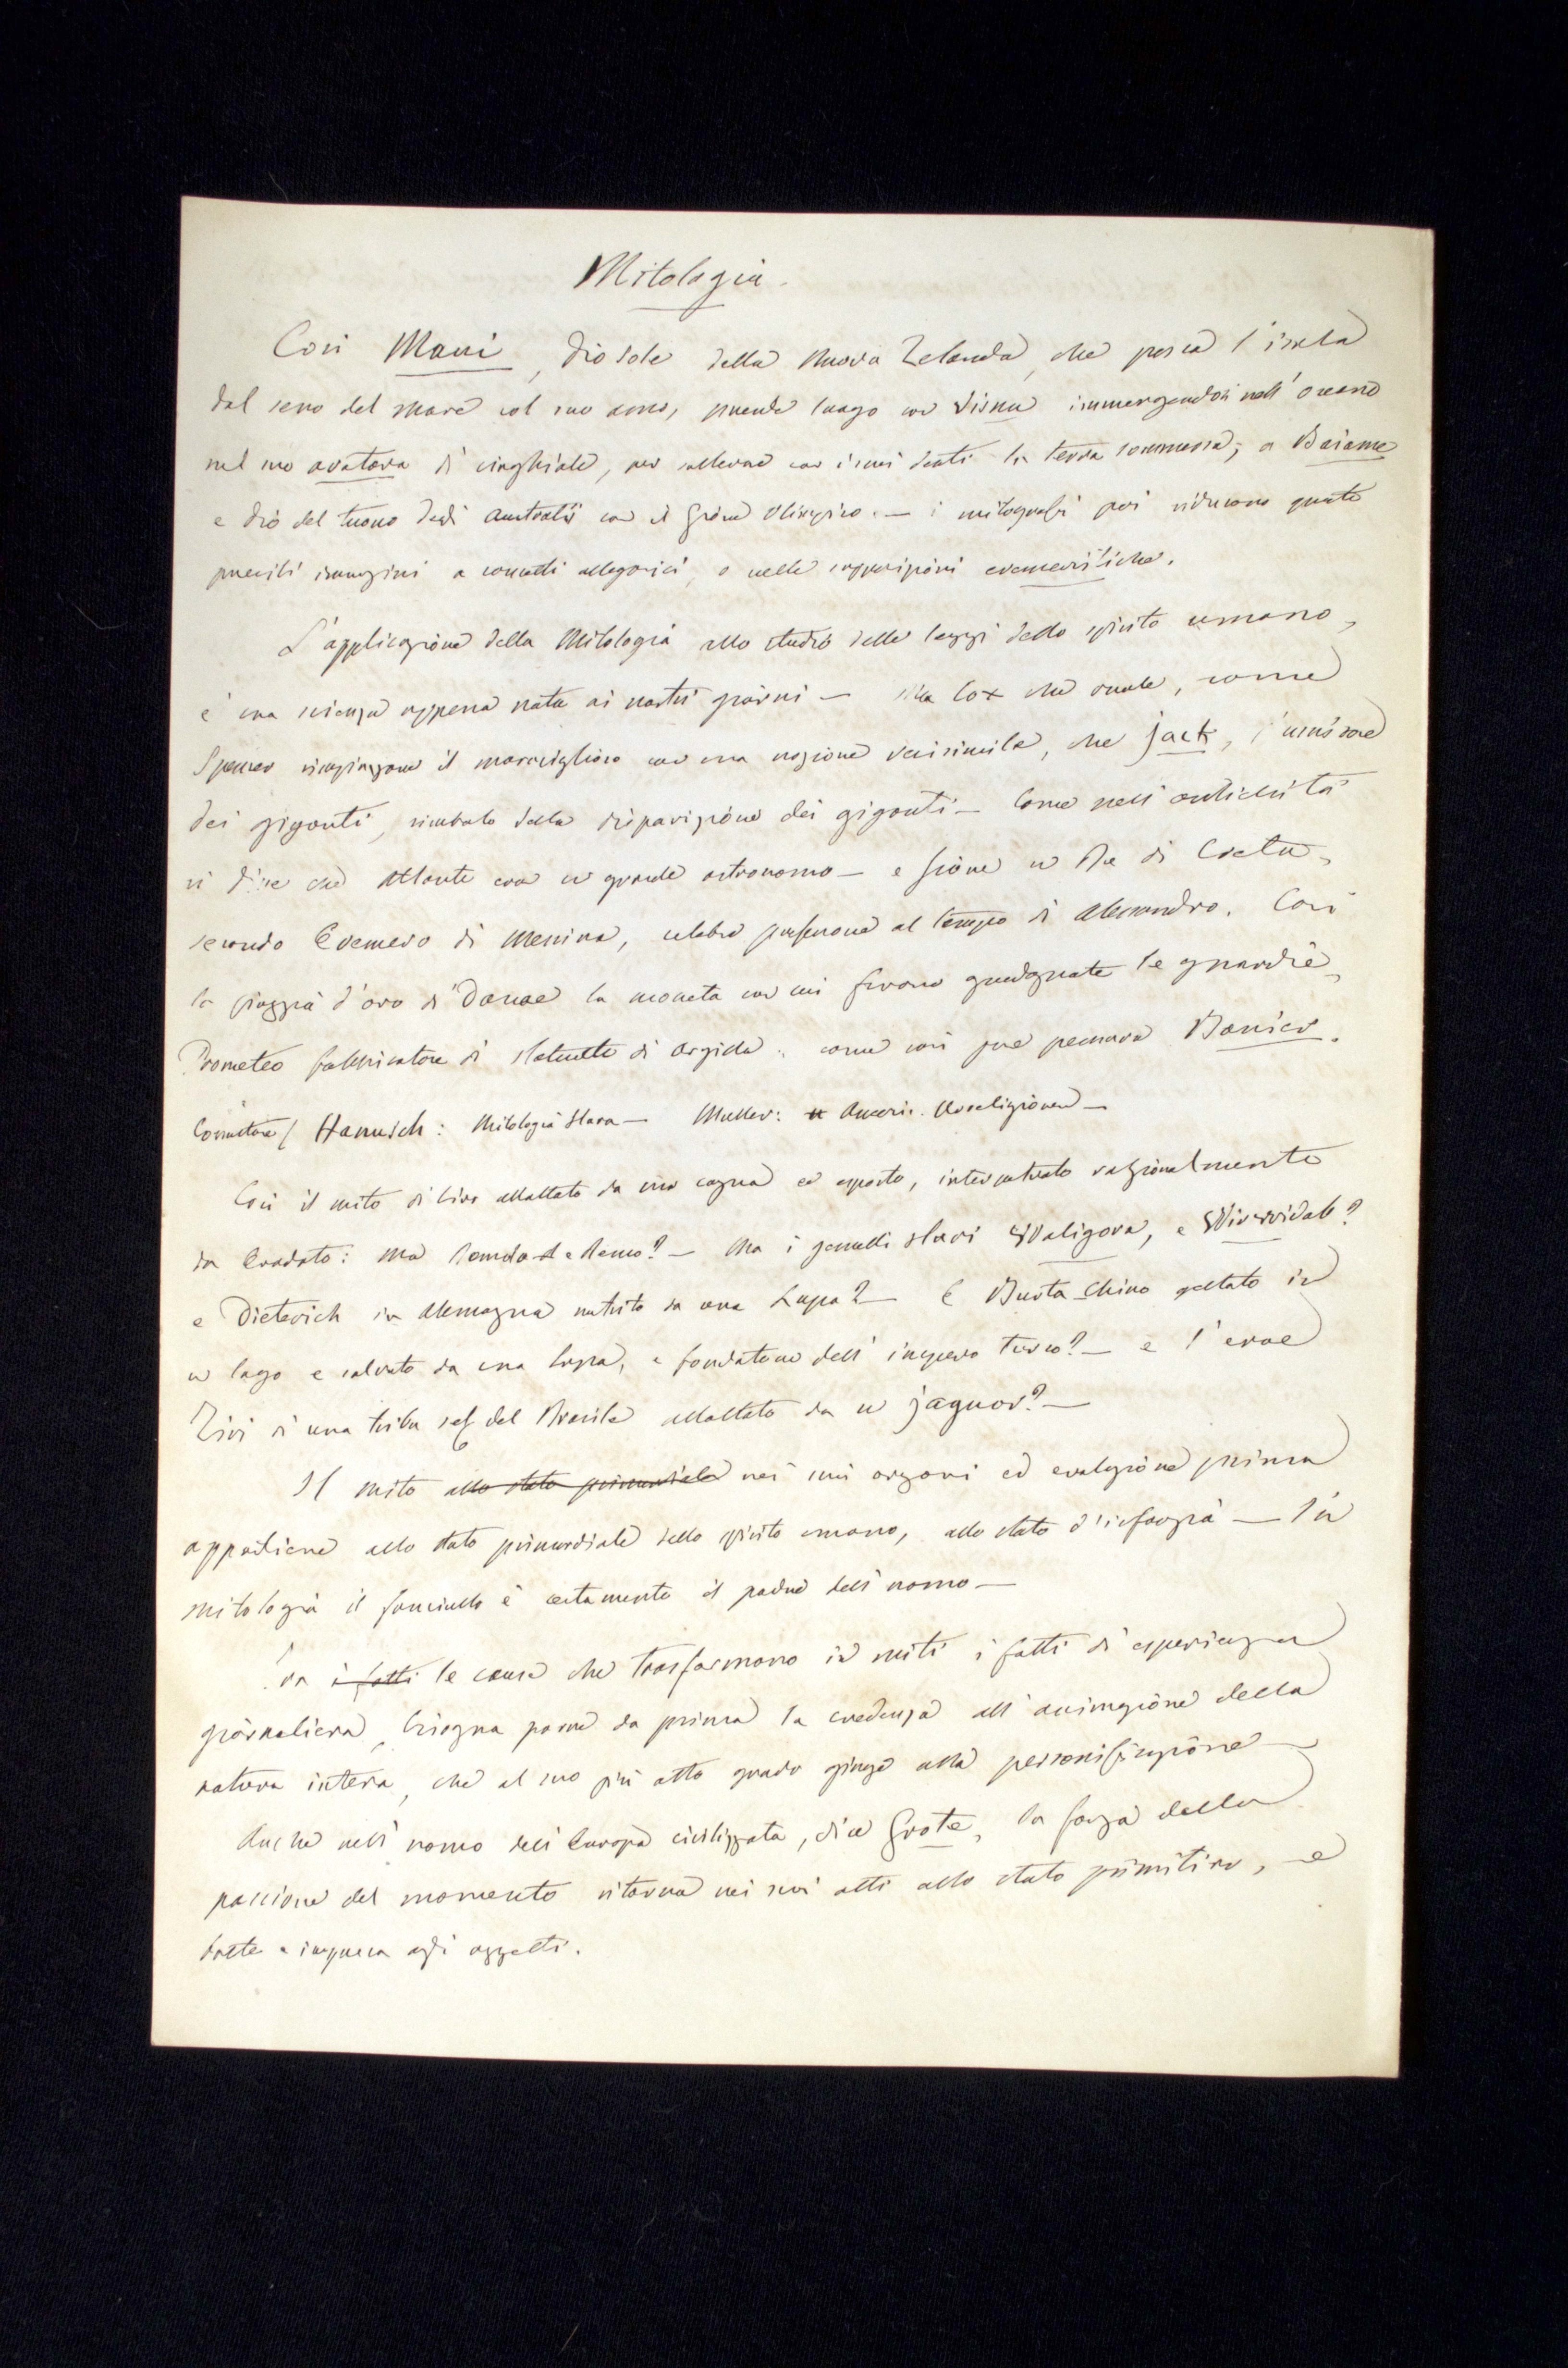 Mitologia.
Così Maui, dio sole della Nuova Zelanda, che pesca l'isola
dal seno del mare col suo amo, prende luogo con Visnu immergendosi nell'oceano
nel suo avatara di cinghiale, per sollevare con i suoi denti la terra sommersa; a Baiame
e dio del tuono degli Australi con il Giove Olimpico. — i mitografi poi riducono queste
puerili immagini a concetti allegorici, o nelle supposizioni evemeristiche.
L'applicazione della Mitologia allo studio delle leggi dello spirito umano,
è una scienza appena nata ai nostri giorni — Ma Cox che vuole, come
Spencer rimpiazzare il maraviglioso con una nozione verisimile, che jack, l'uccisore
dei giganti, simbolo della disparizione dei giganti — Come nell'antichità
si disse che Atlante era un grande astronomo — e Giove un Re di Creta,
secondo Evemero di Messina, celebre al tempo di Alessandro. Così
la pioggia d'oro di Danae la moneta con cui furono guadagnate le guardie,
Prometeo fabbricatore di statuette di argilla, come così pure pensava Banier.
Consultare / Hanusch: Mitologia slava — Muller: Americ. Urreligionen —
Così il mito di Ciro allattato da una cagna ed esposto, interpretato razionalmente
da Erodoto: ma Romolo e Remo? — Ma i gemelli slavi Waligora, e Wirwidab?
e Dieterich in Alemagna nutrito da una Lupa? — E Burta-Chino gettato in
un lago e salvato da una lupa, e fondatore dell'impero turco? — e l'eroe
Zivi di una tribu sel. del Brasile allattato da un jaguar? —
Il mito allo stato primordiale nei suoi organi ed evoluzione prima
appartiene allo stato primordiale dello spirito umano, allo stato d'infanzia — In
mitologia il fanciullo è certamente il padre dell'uomo —
Fra i fatti le cause che trasformano in miti i fatti di esperienza
giornaliera, bisogna porre da prima la credenza all'animazione della
natura intera, che al suo più alto grado giunge alla personificazione —
Anche nell'uomo dell'Europa civilizzata, dice Grote, la forza della
passione del momento ritorna nei suoi atti allo stato primitivo, e
batte e impreca agli oggetti.